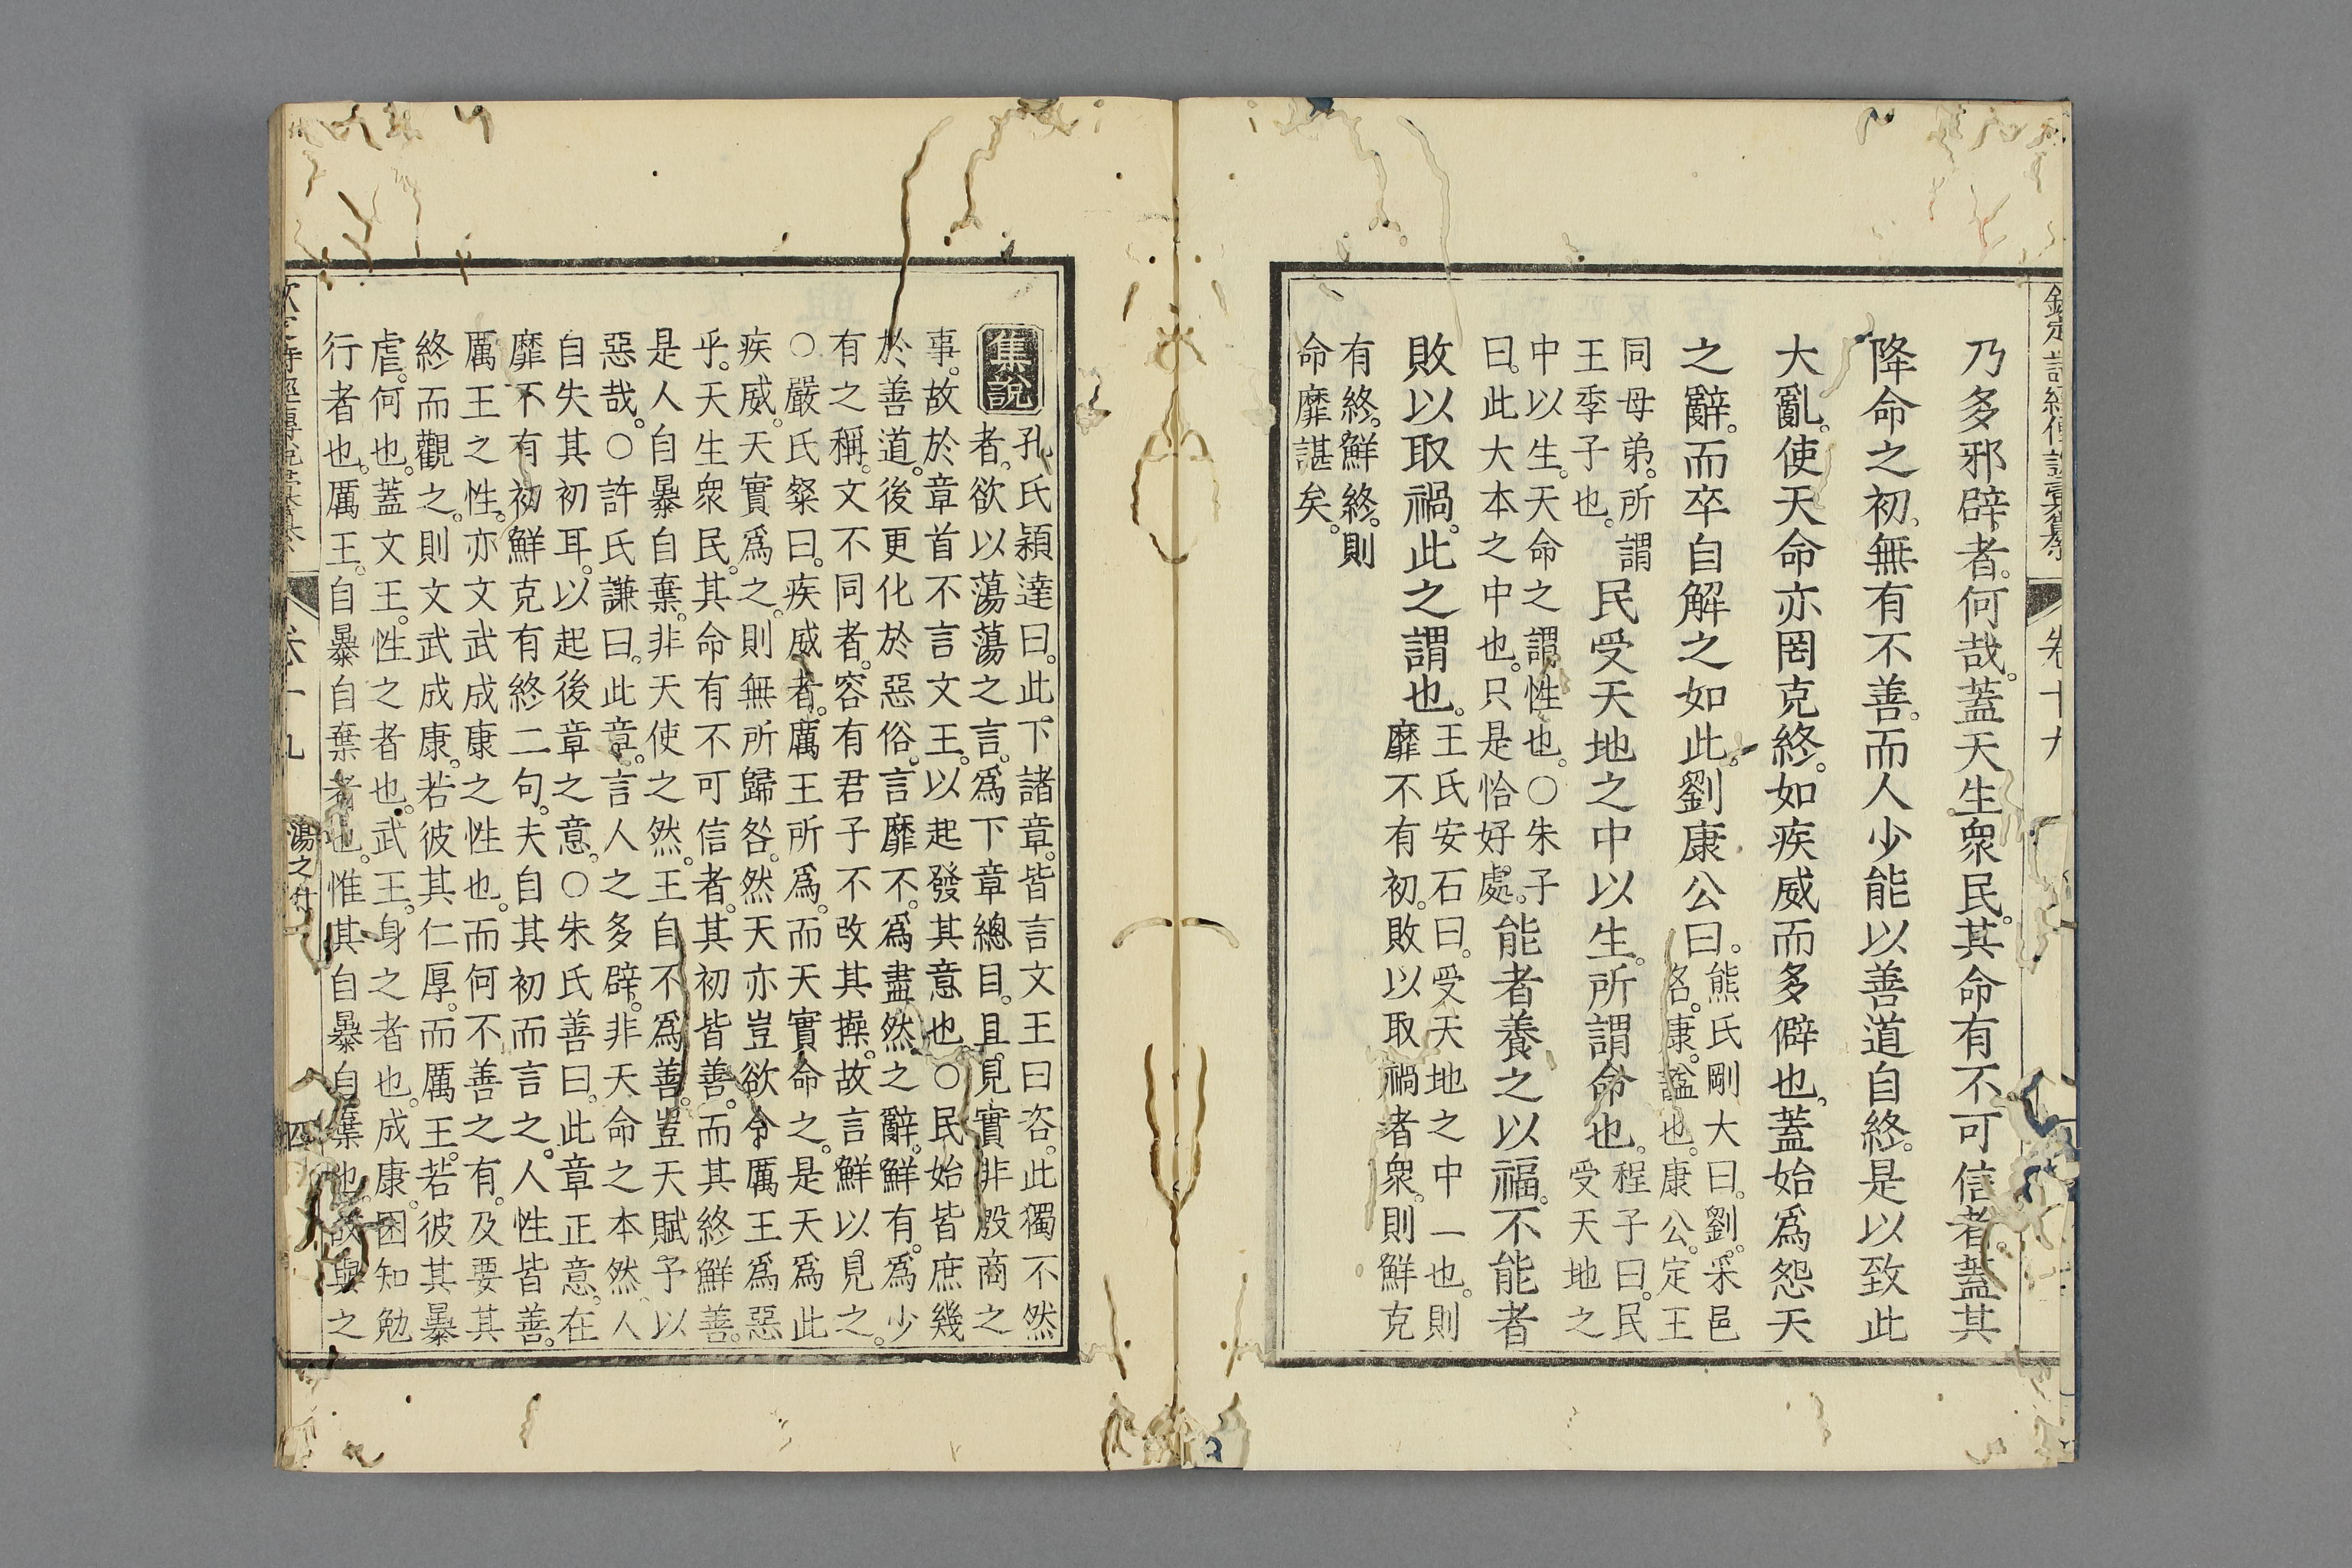 欽定詩經傳說彙纂 卷十九
乃多邪辟者。何哉。蓋天生衆民。其命有不可信者。蓋其
降命之初。無有不善。而人少能以善道自終。是以致此
大亂。使天命亦罔克終。如疾威而多僻也。蓋始爲怨天
之辭。而卒自解之如此。劉康公曰。
熊氏剛大曰。劉。采邑
名。康。諡也。康公。定王
同母弟。所謂
王季子也。
民受天地之中以生。所謂命也。
程子曰。民
受天地之
中以生。天命之謂性也。○朱子
曰。此大本之中也。只是恰好處。
能者養之以福。不能者
敗以取禍。此之謂也。
王氏安石曰。受天地之中一也。則
靡不有初。敗以取禍者衆。則鮮克
有終。鮮終。則
命靡諶矣。
集說
孔氏穎達曰。此下諸章。皆言文王曰咨。此獨不然
者。欲以蕩蕩之言。爲下章總目。且見實非殷商之
事。故於章首不言文王。以起發其意也。○民始皆庶幾
於善道。後更化於惡俗。言靡不。爲盡然之辭。鮮有。爲少
有之稱。文不同者。容有君子不改其操。故言鮮以見之。
○嚴氏粲曰。疾威者。厲王所爲。而天實命之。是天爲此
疾威。天實爲之。則無所歸咎。然天亦豈欲令厲王爲惡
乎。天生衆民。其命有不可信者。其初皆善。而其終鮮善。
是人自暴自棄。非天使之然。王自不爲善。豈天賦予以
惡哉。○許氏謙曰。此章。言人之多辟。非天命之本然。人
自失其初耳。以起後章之意。○朱氏善曰。此章正意。在
靡不有初鮮克有終二句。夫自其初而言之。人性皆善。
厲王之性。亦文武成康之性也。而何不善之有。及要其
終而觀之。則文武成康。若彼其仁厚。而厲王。若彼其暴
虐。何也。蓋文王。性之者也。武王。身之者也。成康。困知勉
行者也。厲王。自暴自棄者也。惟其自暴自棄也。故與之
欽定詩經傳說彙纂 卷十九 蕩之什 四